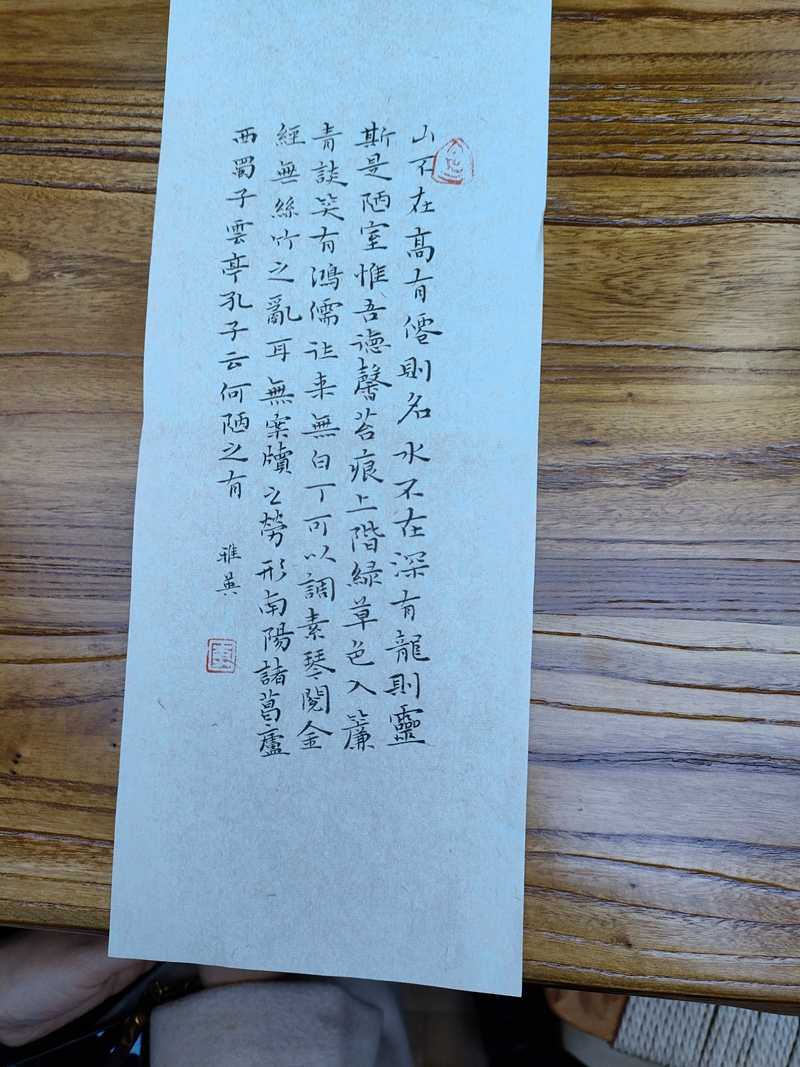 山不在高有僊則名水不在深有龍則靈
斯是陋室惟吾德馨苔痕上階緑草色入簾
青談笑有鴻儒往来無白丁可以調素琴閱金
經無絲竹之亂耳無案牘之勞形南陽諸葛廬
西蜀子雲亭孔子云何陋之有
雅英